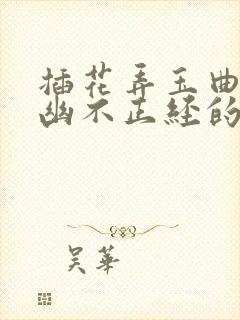 插花弄玉曲
幽不正经的
吴华